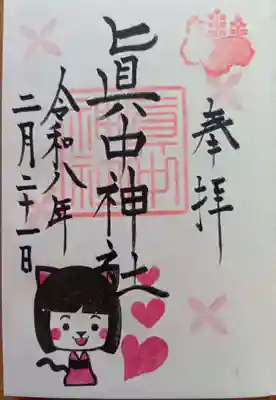 奉拝
眞中神社
令和八年
二月二十一日